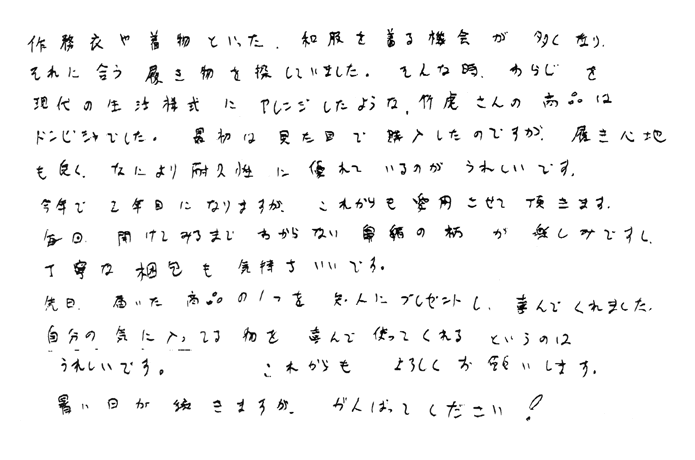 作務衣や着物といった、和服を着る機会が多く有り、
それに合う履き物を探していました。そんな時、わらじを
現代の生活様式にアレンジしたような、竹虎さんの商品は
ドンピシャでした。最初は見た目で購入したのですが、履き心地
も良く、なにより耐久性に優れているのがうれしいです。
今年で2年目になりますが、これからも愛用させて頂きます。
毎回、開けてみるまでわからない鼻緒の柄が楽しみですし、
丁寧な梱包も気持ちいいです。
先日、届いた商品の1つを知人にプレゼントし、喜んでくれました。
自分の気に入ってる物を喜んで使ってくれるというのは
うれしいです。これからもよろしくお願いします。
暑い日が続きますが、がんばってください!